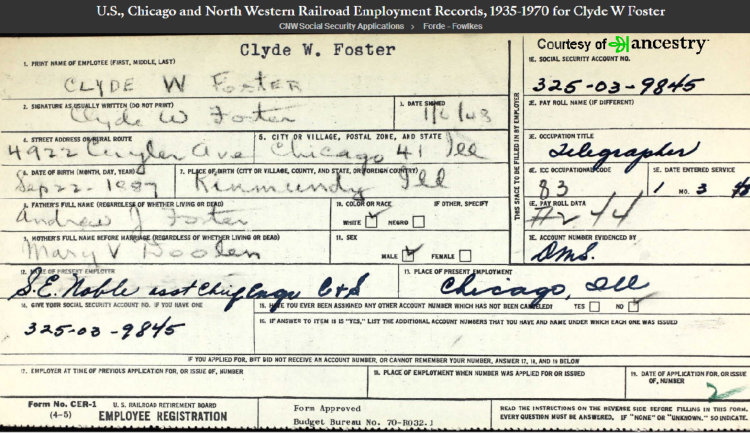 U.S., Chicago and North Western Railroad Employment Records, 1935-1970 for Clyde W Foster
CNW Social Security Applications > Forde - Fowlkes
Clyde W. Foster
Courtesy of ancestry
1. PRINT NAME OF EMPLOYEE (FIRST, MIDDLE, LAST)
CLYDE W FOSTER
1E. SOCIAL SECURITY ACCOUNT NO.
325-03-9845
2. SIGNATURE AS USUALLY WRITTEN (DO NOT PRINT)
Clyde W Foster
3. DATE SIGNED
2E. PAY ROLL NAME (IF DIFFERENT)
THIS SPACE TO BE FILLED IN BY EMPLOYER
4. STREET ADDRESS OR RURAL ROUTE
4922 Cuyler Ave
5. CITY OR VILLAGE, POSTAL ZONE, AND STATE
Chicago 41 Ill
3E. OCCUPATION TITLE
Telegrapher
6. DATE OF BIRTH (MONTH, DAY, YEAR)
Sep 22-
7. PLACE OF BIRTH (CITY OR VILLAGE, COUNTY, AND STATE, OR FOREIGN COUNTRY)
Kinmundy Ill
4E. ICC OCCUPATIONAL CODE
83
5E. DATE ENTERED SERVICE
1 MO. 3
8. FATHER'S FULL NAME (REGARDLESS OF WHETHER LIVING OR DEAD)
Andrew J Foster
10. COLOR OR RACE IF OTHER, SPECIFY
WHITE NEGRO
6E. PAY ROLL DATA
9. MOTHER'S FULL NAME BEFORE MARRIAGE (REGARDLESS OF WHETHER LIVING OR DEAD)
Mary V Doolen
11. SEX
MALE FEMALE
7E. ACCOUNT NUMBER EVIDENCED BY
12. NAME OF PRESENT EMPLOYER
S.E. Noble asst Chief Engr C&S
13. PLACE OF PRESENT EMPLOYMENT
Chicago, Ill
14. GIVE YOUR SOCIAL SECURITY ACCOUNT NO. IF YOU HAVE ONE
325-03-9845
15. HAVE YOU EVER BEEN ASSIGNED ANY OTHER ACCOUNT NUMBER WHICH HAS NOT BEEN CANCELED? YES NO
16. IF ANSWER TO ITEM 15 IS "YES," LIST THE ADDITIONAL ACCOUNT NUMBERS THAT YOU HAVE AND NAME UNDER WHICH EACH ONE WAS ISSUED
IF YOU APPLIED FOR, BUT DID NOT RECEIVE AN ACCOUNT NUMBER, OR CANNOT REMEMBER YOUR NUMBER, ANSWER 17, 18, AND 19 BELOW
17. EMPLOYER AT TIME OF PREVIOUS APPLICATION FOR, OR ISSUE OF, NUMBER
18. PLACE OF EMPLOYMENT WHEN NUMBER WAS APPLIED FOR OR ISSUED
19. DATE OF APPLICATION FOR, OR ISSUE OF, NUMBER
2
Form No. CER-1
(4-5)
U. S. RAILROAD RETIREMENT BOARD
EMPLOYEE REGISTRATION
Form Approved
Budget Bureau No. 70-R032.1
READ THE INSTRUCTIONS ON THE REVERSE SIDE BEFORE FILLING IN THIS FORM.
EVERY QUESTION MUST BE ANSWERED. IF "NONE" OR "UNKNOWN," SO INDICATE.